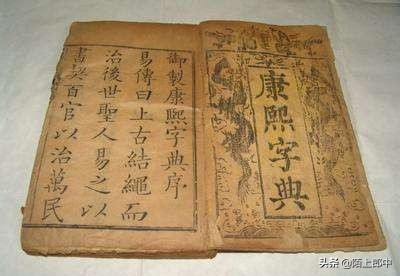 康熙字典
御製康熙字典序
易傳曰上古結繩而
治後世聖人易之以
書契百官以治萬民
头条 @陌上郎中